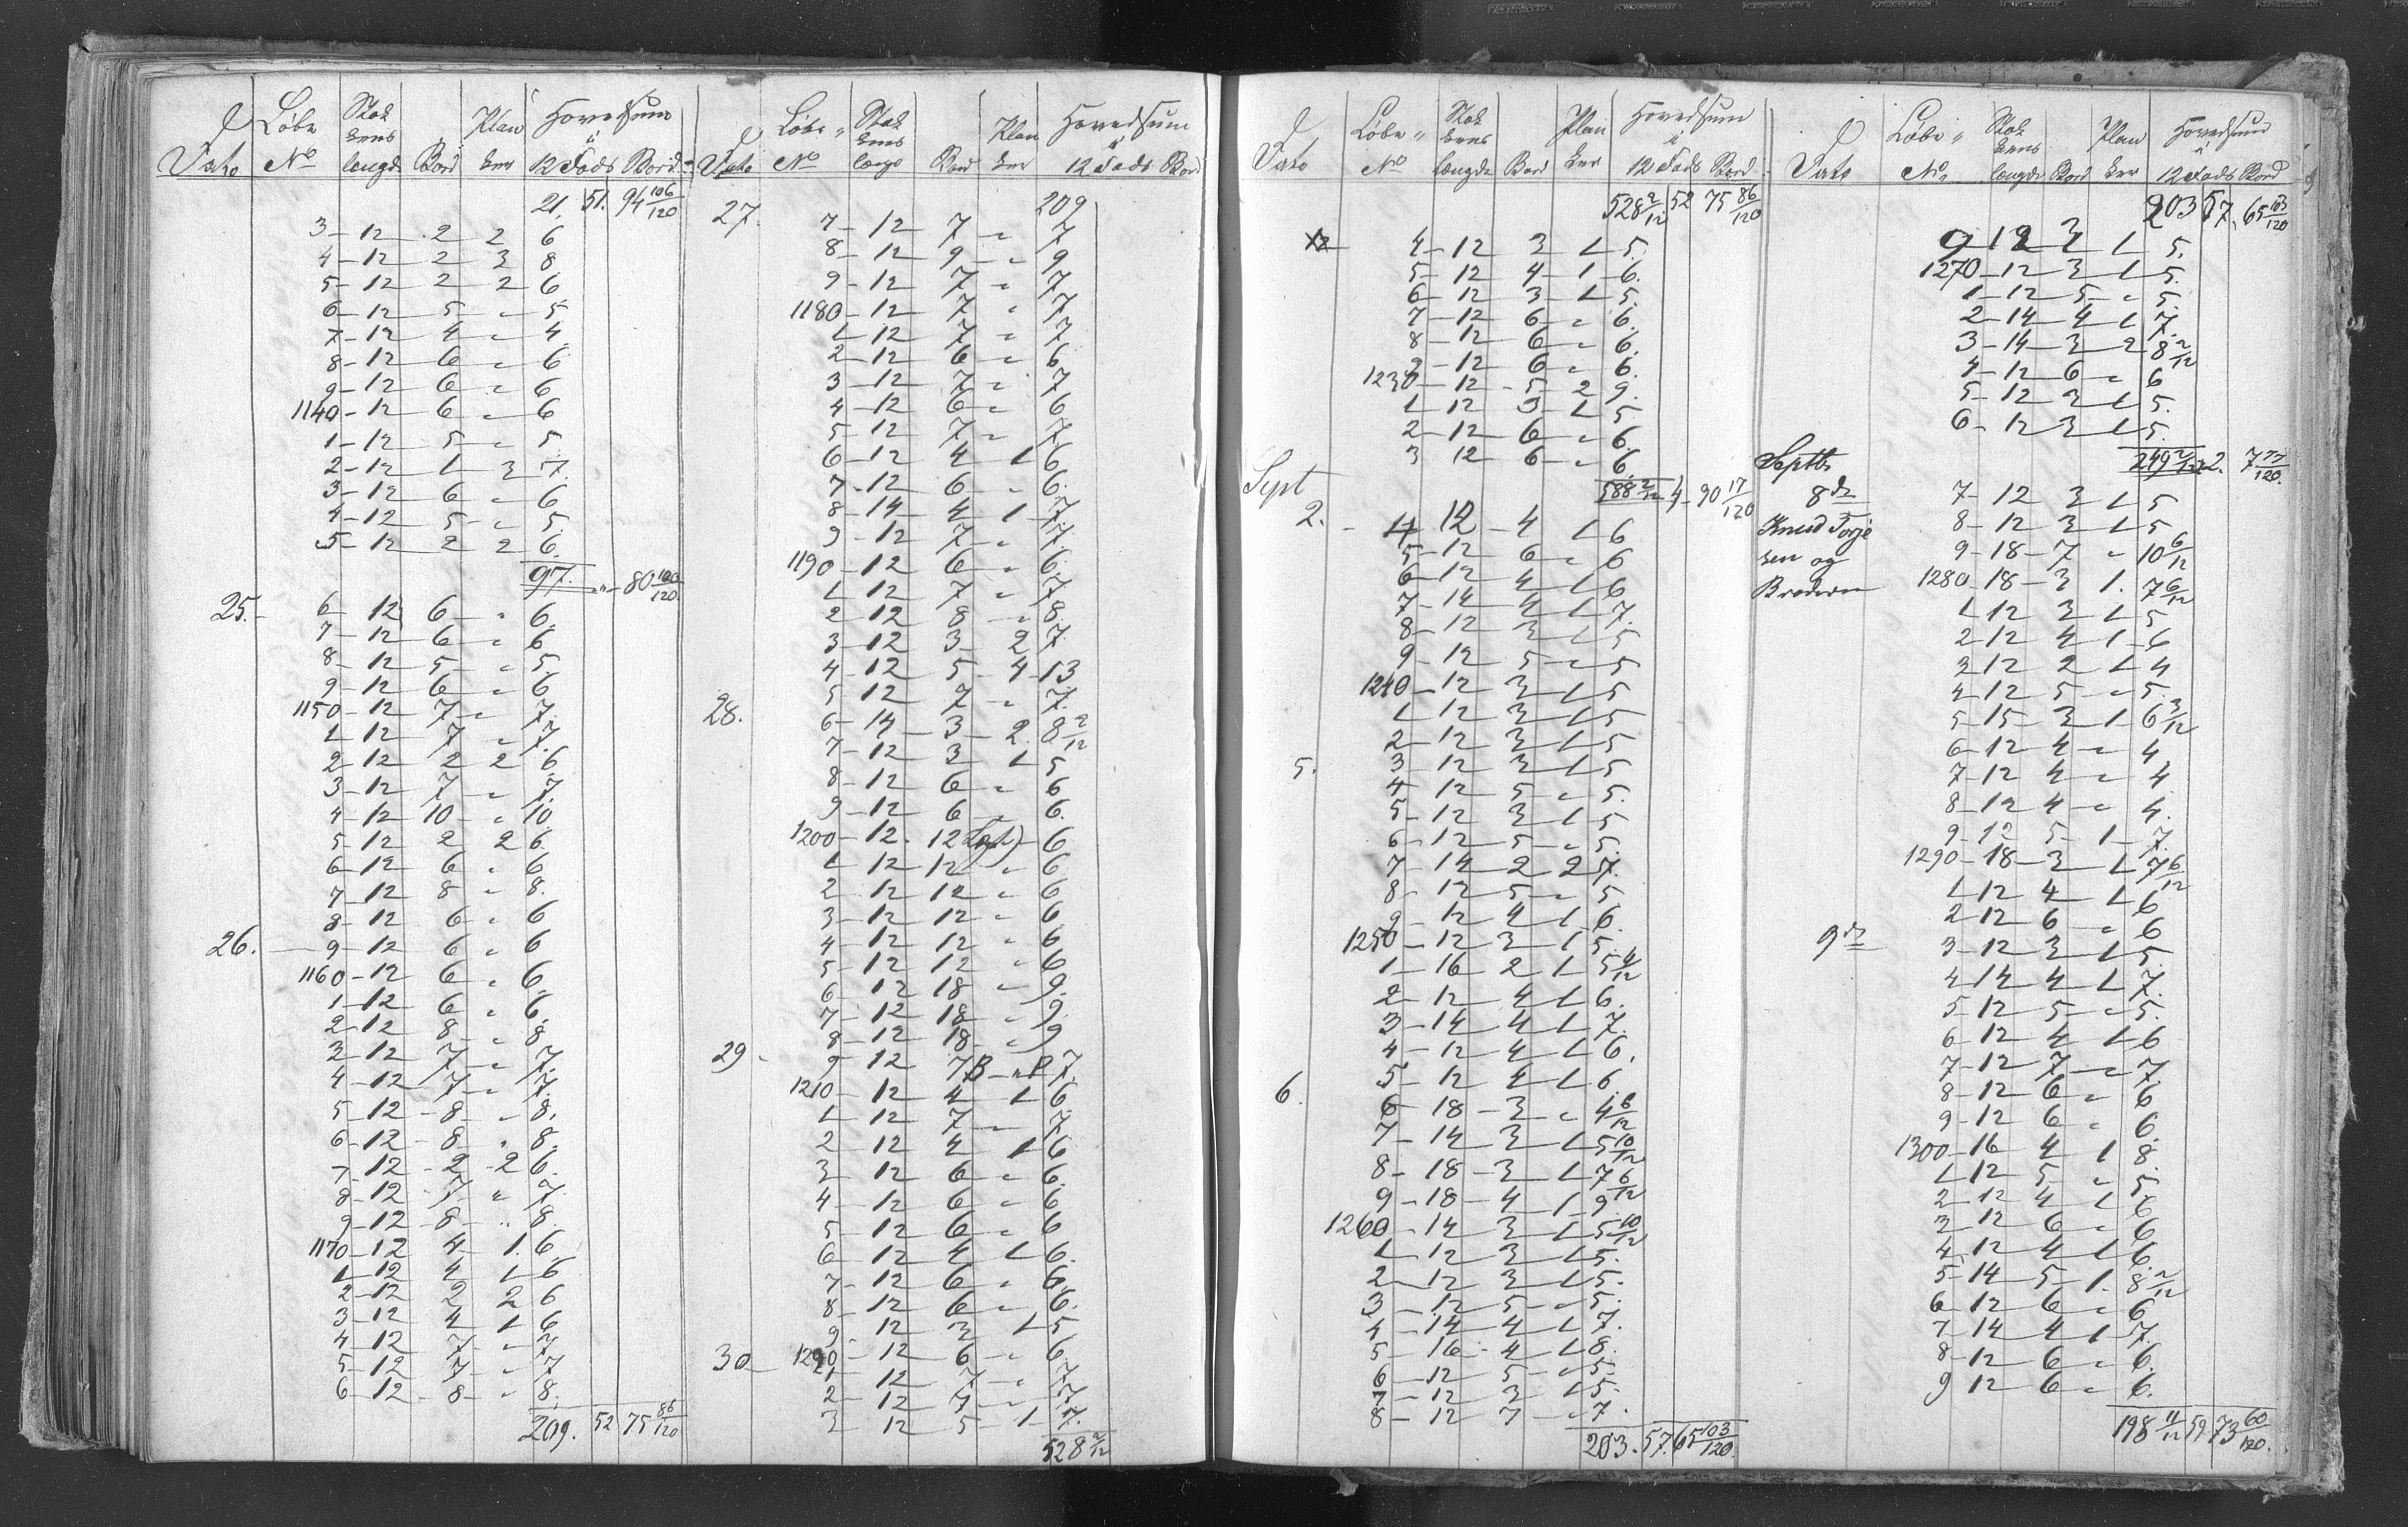 d Dato | Løbe No | Stokkens længde | Bord | Planker | Hovedsum i 12 Fods Bord
21. 51. 94 106/120
3 - 12 2 2 6
4 - 12 2 3 8
5 - 12 2 2 6
6 - 12 5 " 5.
7 - 12 4 " 4.
8 - 12 6 " 6
9 - 12 6 " 6
1140 - 12 6 " 6
1 - 12 5 " 5
2 - 12 1 3 7.
3 - 12 6 " 6
4 - 12 5 " 5.
5 - 12 2 2 6.
97. " 80 100/120
25. 6 12 6 " 6.
7 - 12 6 " 6
8 - 12 5 " 5.
9 - 12 6 " 6
1150 - 12 7 " 7.
1 12 7 " 7.
2 12 2 2 6.
3 - 12 7 " 7.
4 - 12 10 " 10.
5 - 12 2 2 6.
6 - 12 6 " 6
7 - 12 8 " 8.
8 - 12 6 " 6
26. 9 - 12 6 " 6
1160 - 12 6 " 6.
1 - 12 6 " 6.
2 - 12 8 " 8
3 - 12 7 " 7.
4 - 12 7 " 7.
5 - 12 8 " 8.
6 - 12 8 " 8.
7 - 12 2 2 6.
8 - 12 7 " 7.
9 - 12 8 " 8.
1170 - 12 4 1. 6.
1 - 12 4 1 6
2 - 12 2 2 6
3 - 12 4 1 6
4 - 12 7 " 7
5 - 12 7 " 7
6 - 12 8 " 8.
209. 52 75 86/120
d Dato | Løbe No | Stokkens længe | Bord | Planker | Hovedsum i 12 Fods Bord
209
27. 7 - 12 7 " 7
8 - 12 9 " 9
9 - 12 7 " 7
1180 - 12 7 " 7
1 12 7 " 7
2 - 12 6 " 6
3 - 12 7 " 7
4 - 12 6 " 6
5 - 12 7 " 7
6 - 12 4 1 6
7 - 12 6 " 6.
8 - 14 4 1 7
9 - 12 7 " 7.
1190 - 12 6 " 6.
1 12 7 " 7
2 12 8 " 8.
3 - 12 3 2 7.
4 - 12 5 4 13
5 12 7 " 7.
28. 6 - 14 3 2. 8 2/12
7 - 12 3 1 5
8 - 12 6 " 6
9 - 12 6 " 6.
1200 - 12. 12 6
1 12 12 " 6
2 12 12 " 6
3 - 12 12 " 6
4 - 12 12 " 6
5 - 12 12 " 6
6 - 12 18 " 9.
7 - 12 18 " 9
8 - 12 18 " 9
29 - 9 12 7 B 7.
1210 - 12 4 1 6
1 - 12 7 " 7.
2 12 4 1 6
3 - 12 6 " 6.
4 - 12 6 " 6
5 - 12 6 " 6
6 12 4 1 6.
7 - 12 6 " 6.
8 - 12 6 " 6.
9 12 3 1 5
30 1220 - 12 6 " 6.
1 - 12 7 " 7
2 - 12 7 " 7.
3 12 5 1 7.
528 2/12
d Dato | Løbe No | Stokkens længde | Bord | Planker | Hovedsum i 12 Fods Bord
528 2/12 52 75 86/120
4 - 12 3 1 5.
5 - 12 4 1 6.
6 - 12 3 1 5.
7 - 12 6 " 6.
8 - 12 6 " 6.
9 - 12 6 " 6.
1230 - 12 5 2 9.
1 12 3 1 5.
2 - 12 6 " 6.
3 12 6 " 6.
588 2/12 4 - 90 17/120
Sept
2. 4 12 4 1 6
5 - 12 6 " 6
6 - 12 4 1 6
7 - 14 4 1 7.
8 - 12 3 1 5
9 - 12 5 " 5
1240 - 12 3 1 5
1 12 3 1 5
2 - 12 3 1 5
5. 3 - 12 3 1 5
4 - 12 5 " 5.
5 - 12 3 1 5
6 - 12 5 " 5.
7 - 14 2 2 7.
8 - 12 5 " 5
9 - 12 4 1 6.
1250 - 12 3 1 5.
1 - 16 2 1 5 4/12
2 - 12 4 1 6.
3 - 14 4 1 7.
4 - 12 4 1 6.
6. 5 - 12 4 1 6.
6 - 18 3 " 4 6/12
7 - 14 3 1 5 10/12
8 - 18 3 1 7 6/12
9 - 18 4 1 9.
1260 - 14 3 1 5 10/12
1 - 12 3 1 5.
2 - 12 3 1 5.
3 - 12 5 " 5.
4 - 14 4 1 7.
5 - 16 4 1 8.
6 - 12 5 " 5.
7 - 12 3 1 5.
8 - 12 7 " 7.
203. 57. 65 103/120
d Dato | Løbe No. | Stokkens længde | Bord | Planker | Hovedsum i 12 Fods Bord
203 57. 65 103/120
9 12 3 1 5.
1270 - 12 3 1 5.
1 - 12 5 " 5.
2 - 14 4 1 7.
3 - 14 3 2 8 2/12
4 - 12 6 " 6
5 - 12 3 1 5.
6 - 12 3 1 5.
249 2/12 2. 7 77/120
Septb
8de 7 - 12 3 1 5
Knud Torje 8 - 12 3 1 5
sen og 9 - 18 7 " 10 6/12
Broderen 1280 - 18 3 1. 7 6/12
1 12 3 1 5
2 12 4 1 6
3 12 2 1 4
4 - 12 5 " 5.
5 - 15 3 1 6 3/12
6 - 12 4 " 4.
7 - 12 4 " 4
8 - 12 4 " 4.
9 - 12 5 1 7.
1290 - 18 3 1 7 6/12
1 12 4 1 6
2 - 12 6 " 6
9de 3 - 12 3 1 5.
4 14 4 1 7.
5 - 12 5 " 5.
6 12 4 1 6
7 - 12 7 " 7.
8 - 12 6 " 6
9 - 12 6 " 6.
1300 - 16 4 1 8.
1 12 5 " 5.
2 - 12 4 1 6
3 - 12 6 " 6
4 - 12 4 1 6.
5 - 14 5 1. 8 2/12
6 - 12 6 " 6
7 - 14 4 1 7.
8 - 12 6 " 6.
9 12 6 " 6.
198 11/12 59 73 60/120.